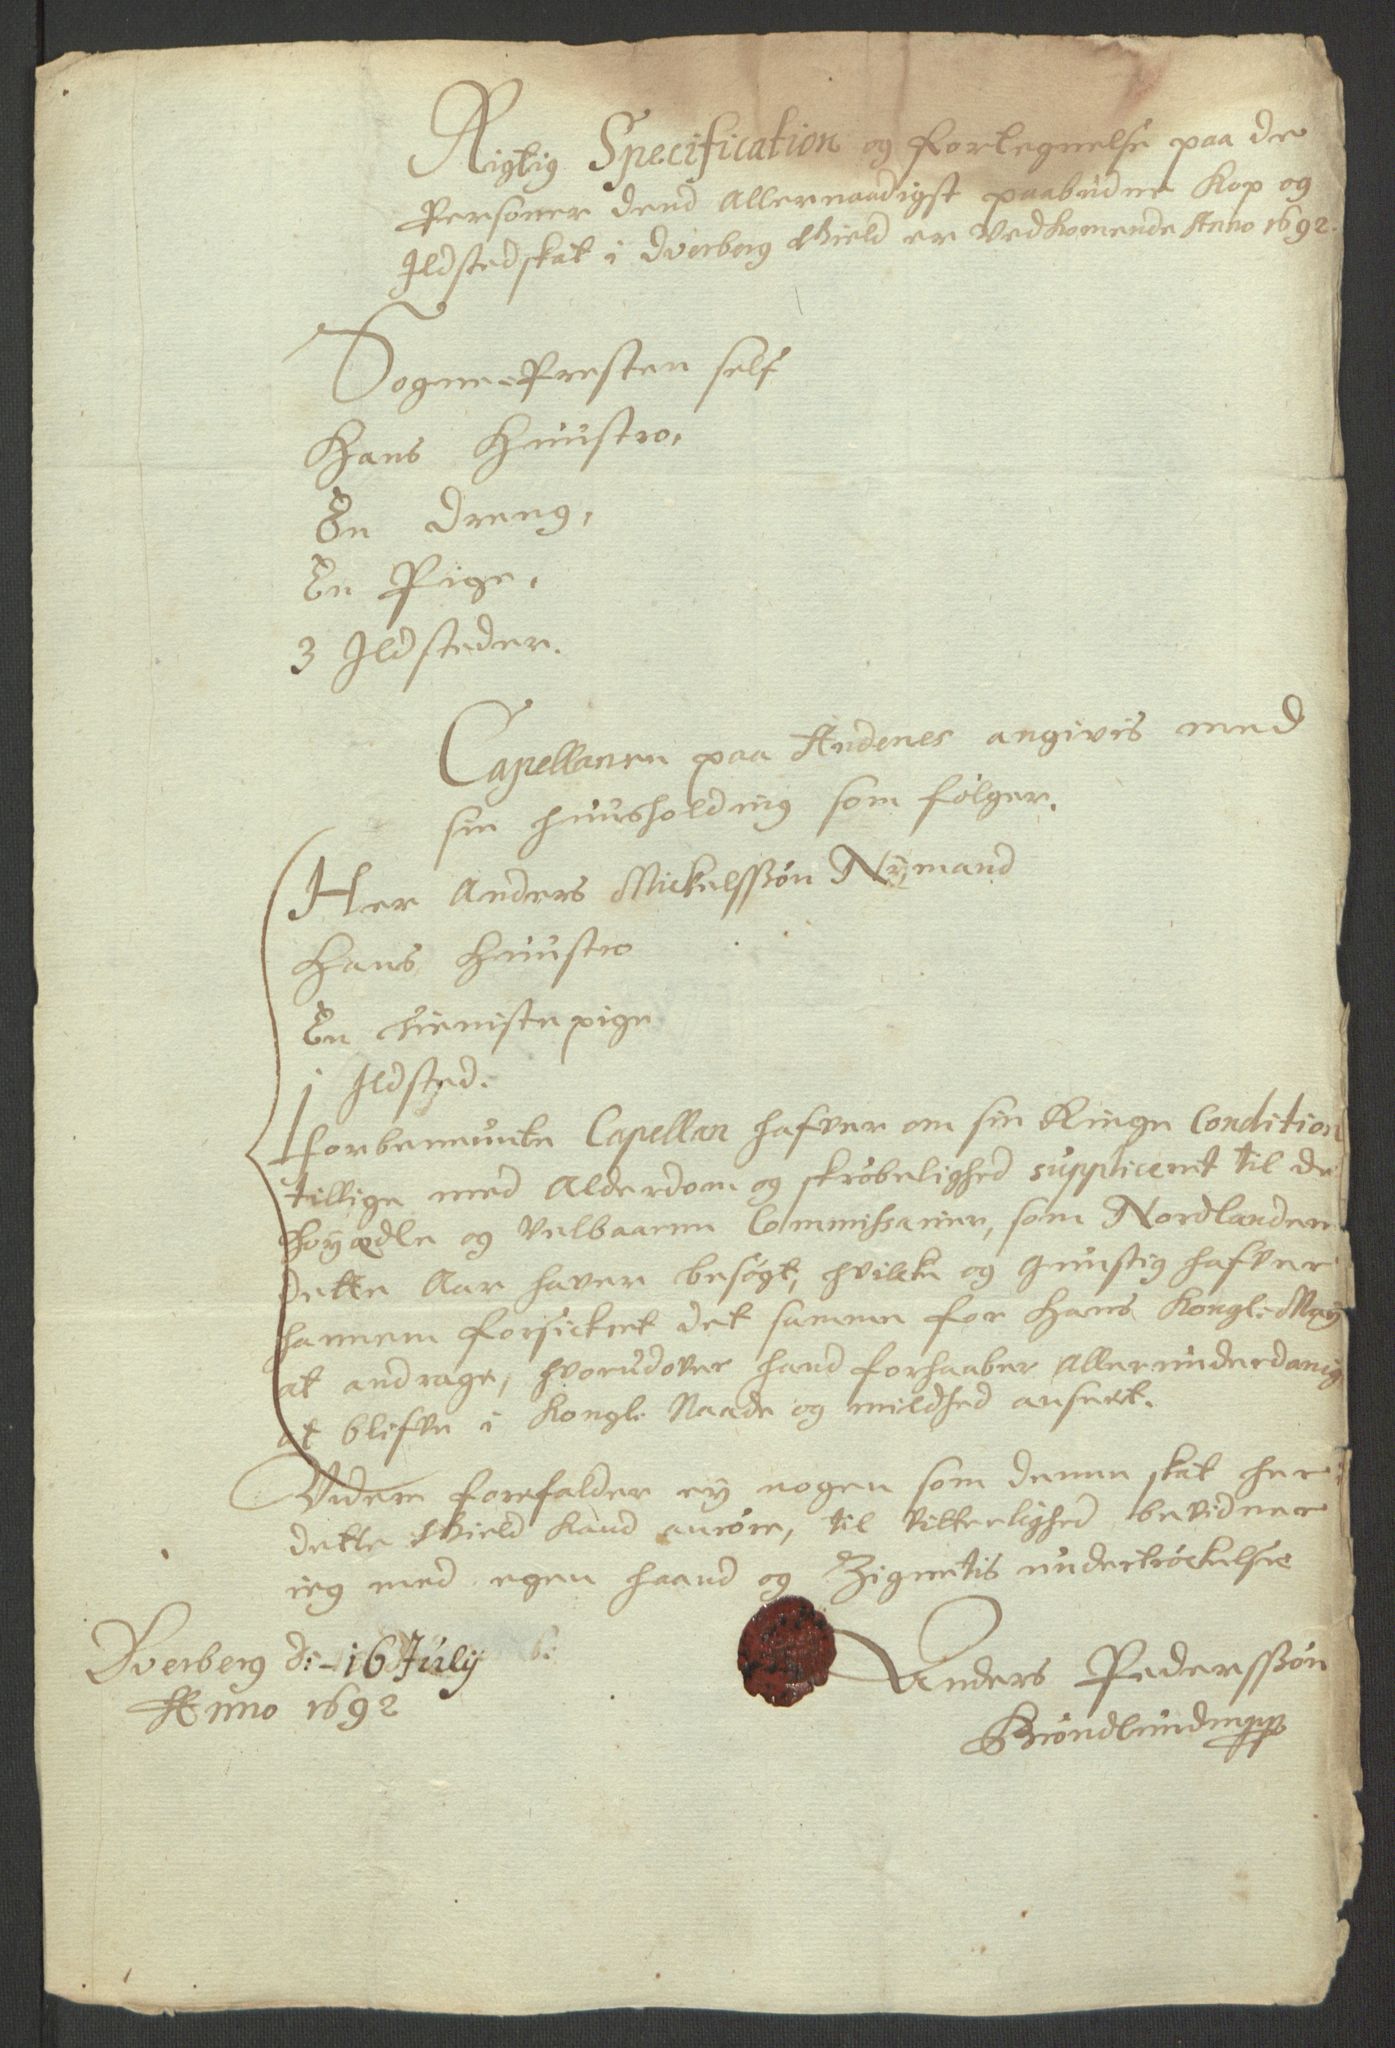 Rigtig Specification og fortegnelse paa de
Personer dend Allernaadigst paabudne Kop og
Ildstedskat i Dverberg Gield er vedkomende Anno 1692.
Sogne-Presten self
Hans Huustro,
En Dreng,
En Pige,
3 Ildsteder.
Capellanen paa Andenes angivis med
sin huusholding som følger.
Her Anders Mickelssøn Nymand
Hans Huustro
En tieniste pige
j Ildsted.
forbenemte Capellan hafver om sin Ringe Condition
tillige med Alderdom og skrøbelighed suppliceret til de
høyædle og velbaarne Commissarier, som Nordlanden
dette Aar haver besøgt, hvilcke og gunstig hafver
hannem forsickret det samme for Hans Kongl: May
at andrage, hvorudover hand forhaaber Allerunderdanig
at blifve i Kongl: Naade og mildhed anseet.
Videre forefalder ey nogen som denne skat her i
dette Gield kand anrøre, til vitterlighed bevidner
ieg med egen haand og Zignetis undertrøckelse
Dverberg d: 16 July
Anno 1692
Anders Pederssøn
Hiøndlund mpp